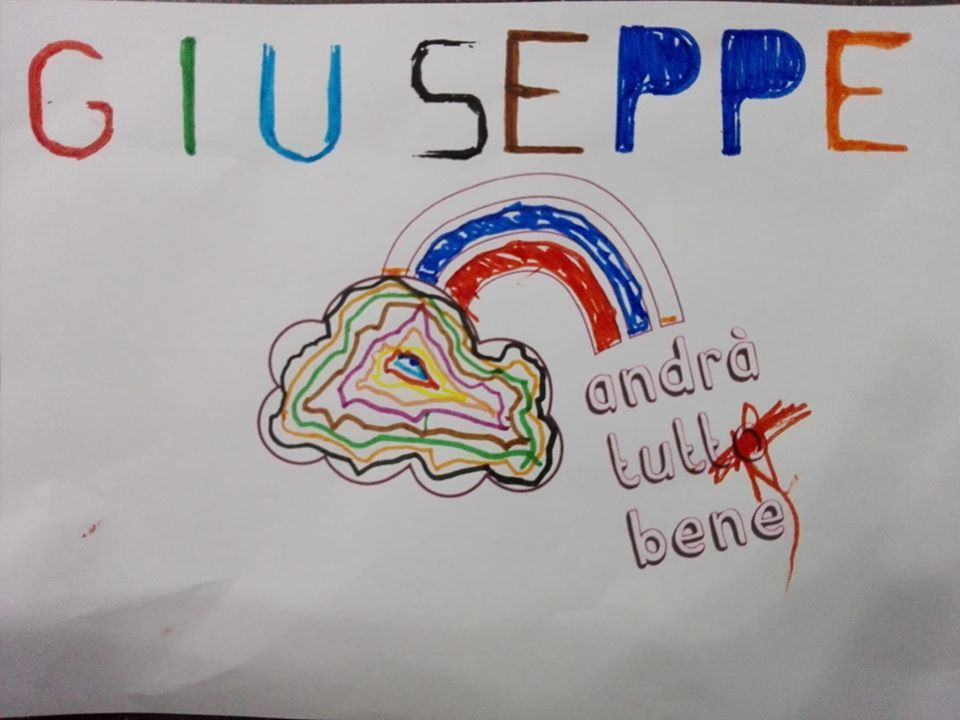 GIUSEPPE
andrà
tutto
bene